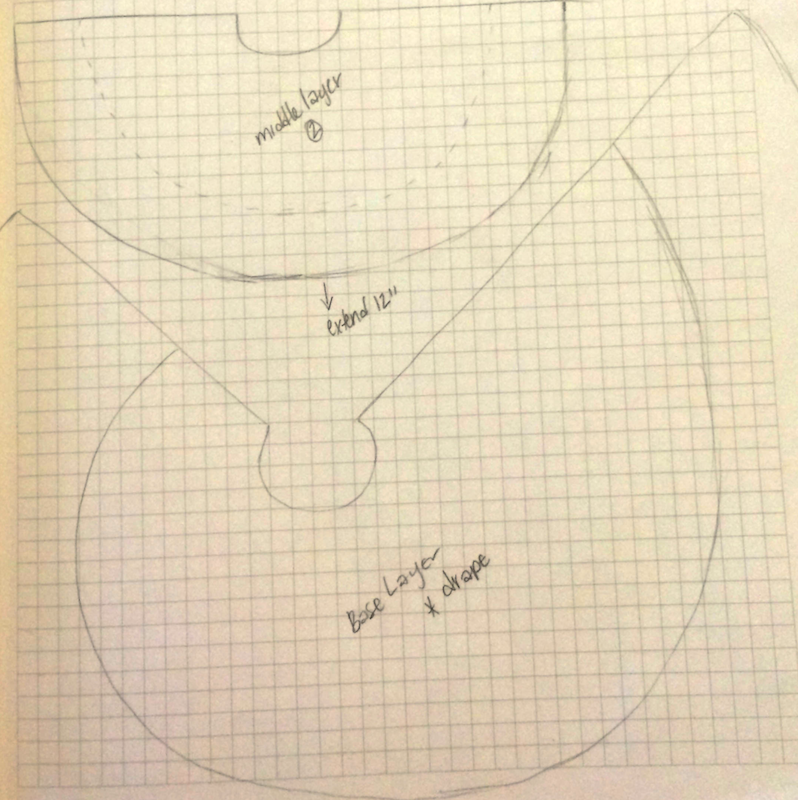 middle layer
②
extend 12"
Base Layer
* drape